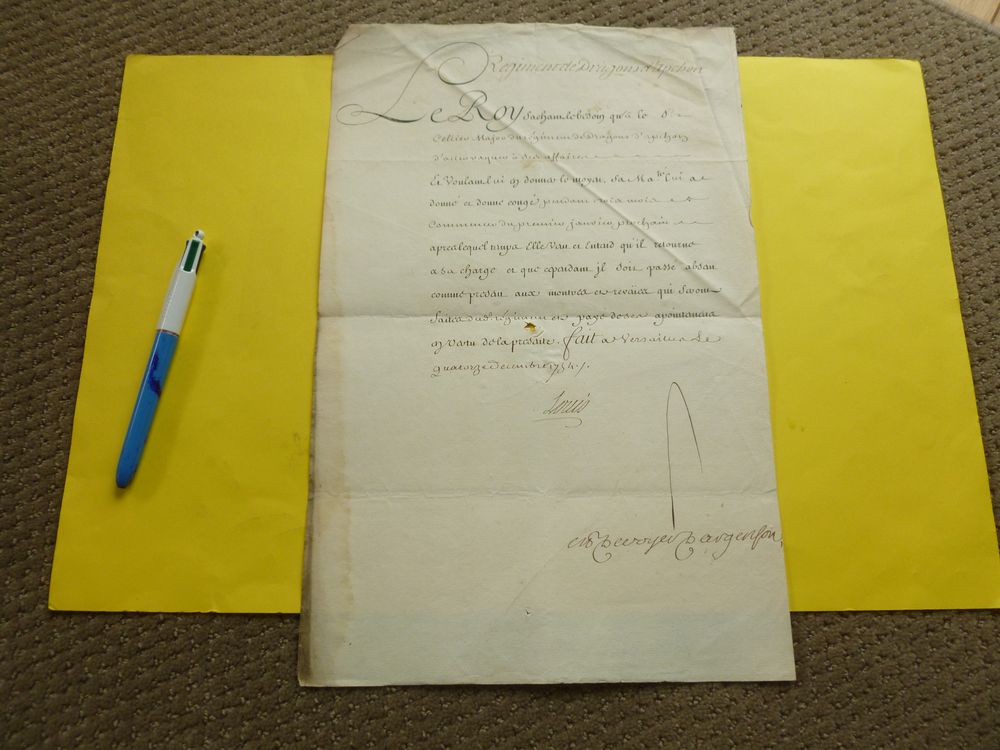 Regiment de Dragons d'apchon
Le Roy Sachant le besoin qu'a le Sr
Major du régiment de Dragons d'apchon
d'aller vaquer à ses affaires
Et Voulant lui en donner le moyen, Sa Ma.té lui a
donné et donne congé pendant mois
Commencer du premier janvier prochain
apres lequel temps Elle Veut et Entend qu'il retourne
a sa charge et que cependant jl soit passé absent
comme present aux montres et reveües qui seront
faites dud. régiment et payé de ses apointemens
en vertu de la presente. fait a Versailles Le
quatorze Decembre 1754./.
Louis
De voyer D'argenson